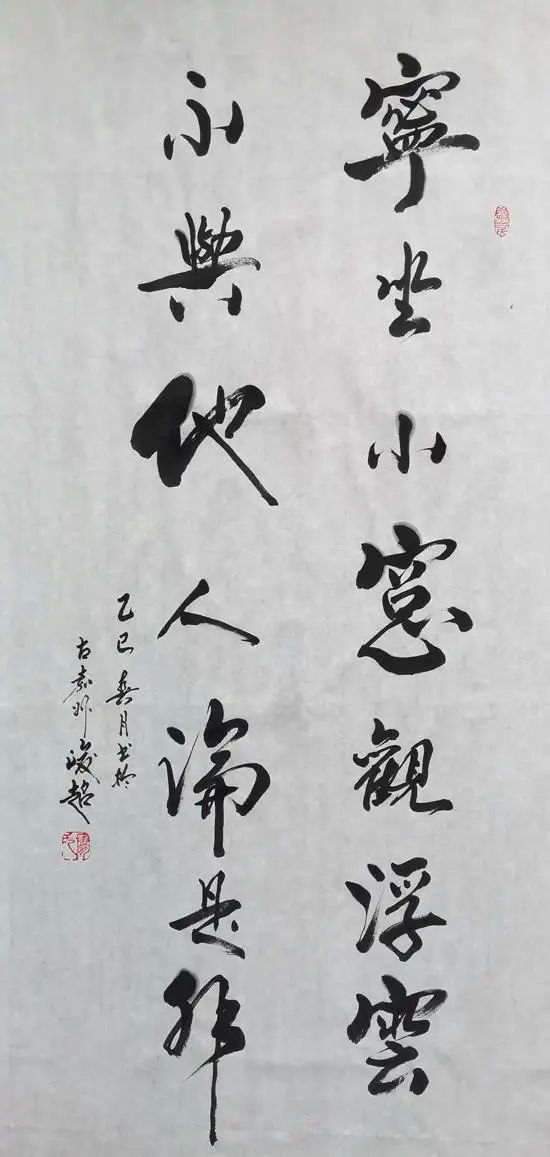 寧坐小窻觀浮雲
不與他人論是非
乙巳春月書於
古嘉州峻超